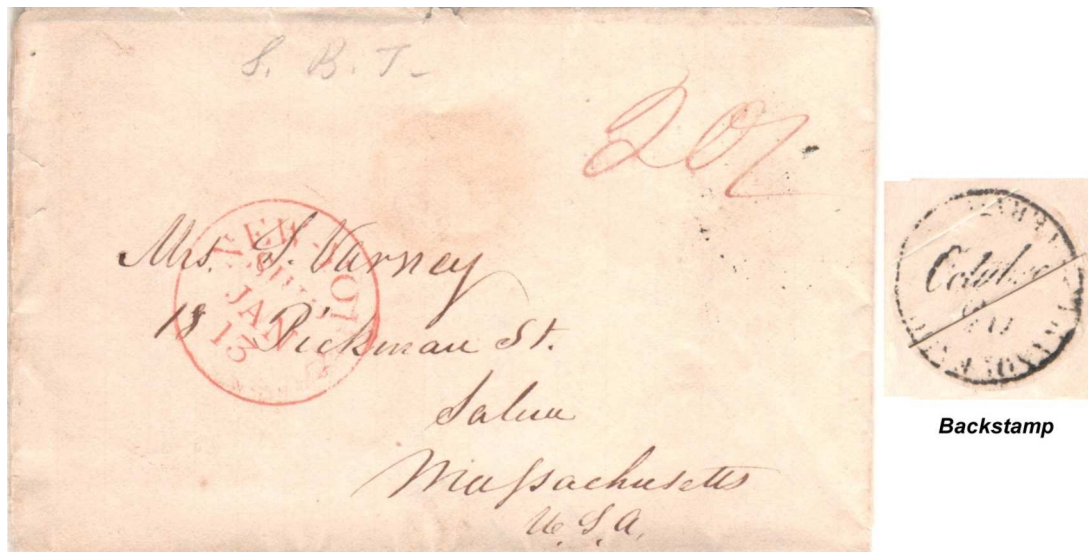 S. B. T.
20
NEW YORK
SHIP
JAN
13
Mrs. S. Varney
18 Pickman St.
Salem
Massachusetts
U.S.A.
Backstamp